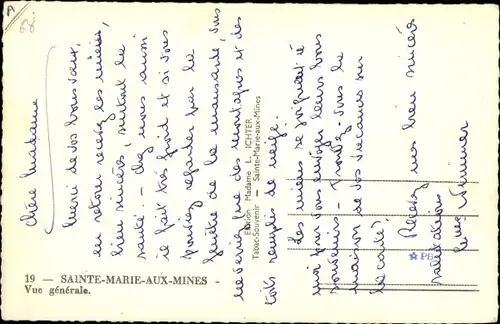 A
Chère Madame
Merci de vos bons vœux,
en retour recevez les miens,
bien sincères, surtout la
santé. - Chez nous aussi
il fait très froid et si vous
pouviez regarder par la
fenêtre de la mansarde, vous
ne verriez que des montagnes et des
toits remplis de neige.
Les miens se joignent à
moi pour vous envoyer leurs bons
souvenirs - Trouvez-vous la
maison de vos vacances sur
la carte?
Recevez mes bien sincères
salutations
Edition Madame L. ICHTER
Tabac-Souvenir — Sainte-Marie-aux-Mines
PB
19 - SAINTE-MARIE-AUX-MINES -
Vue générale.